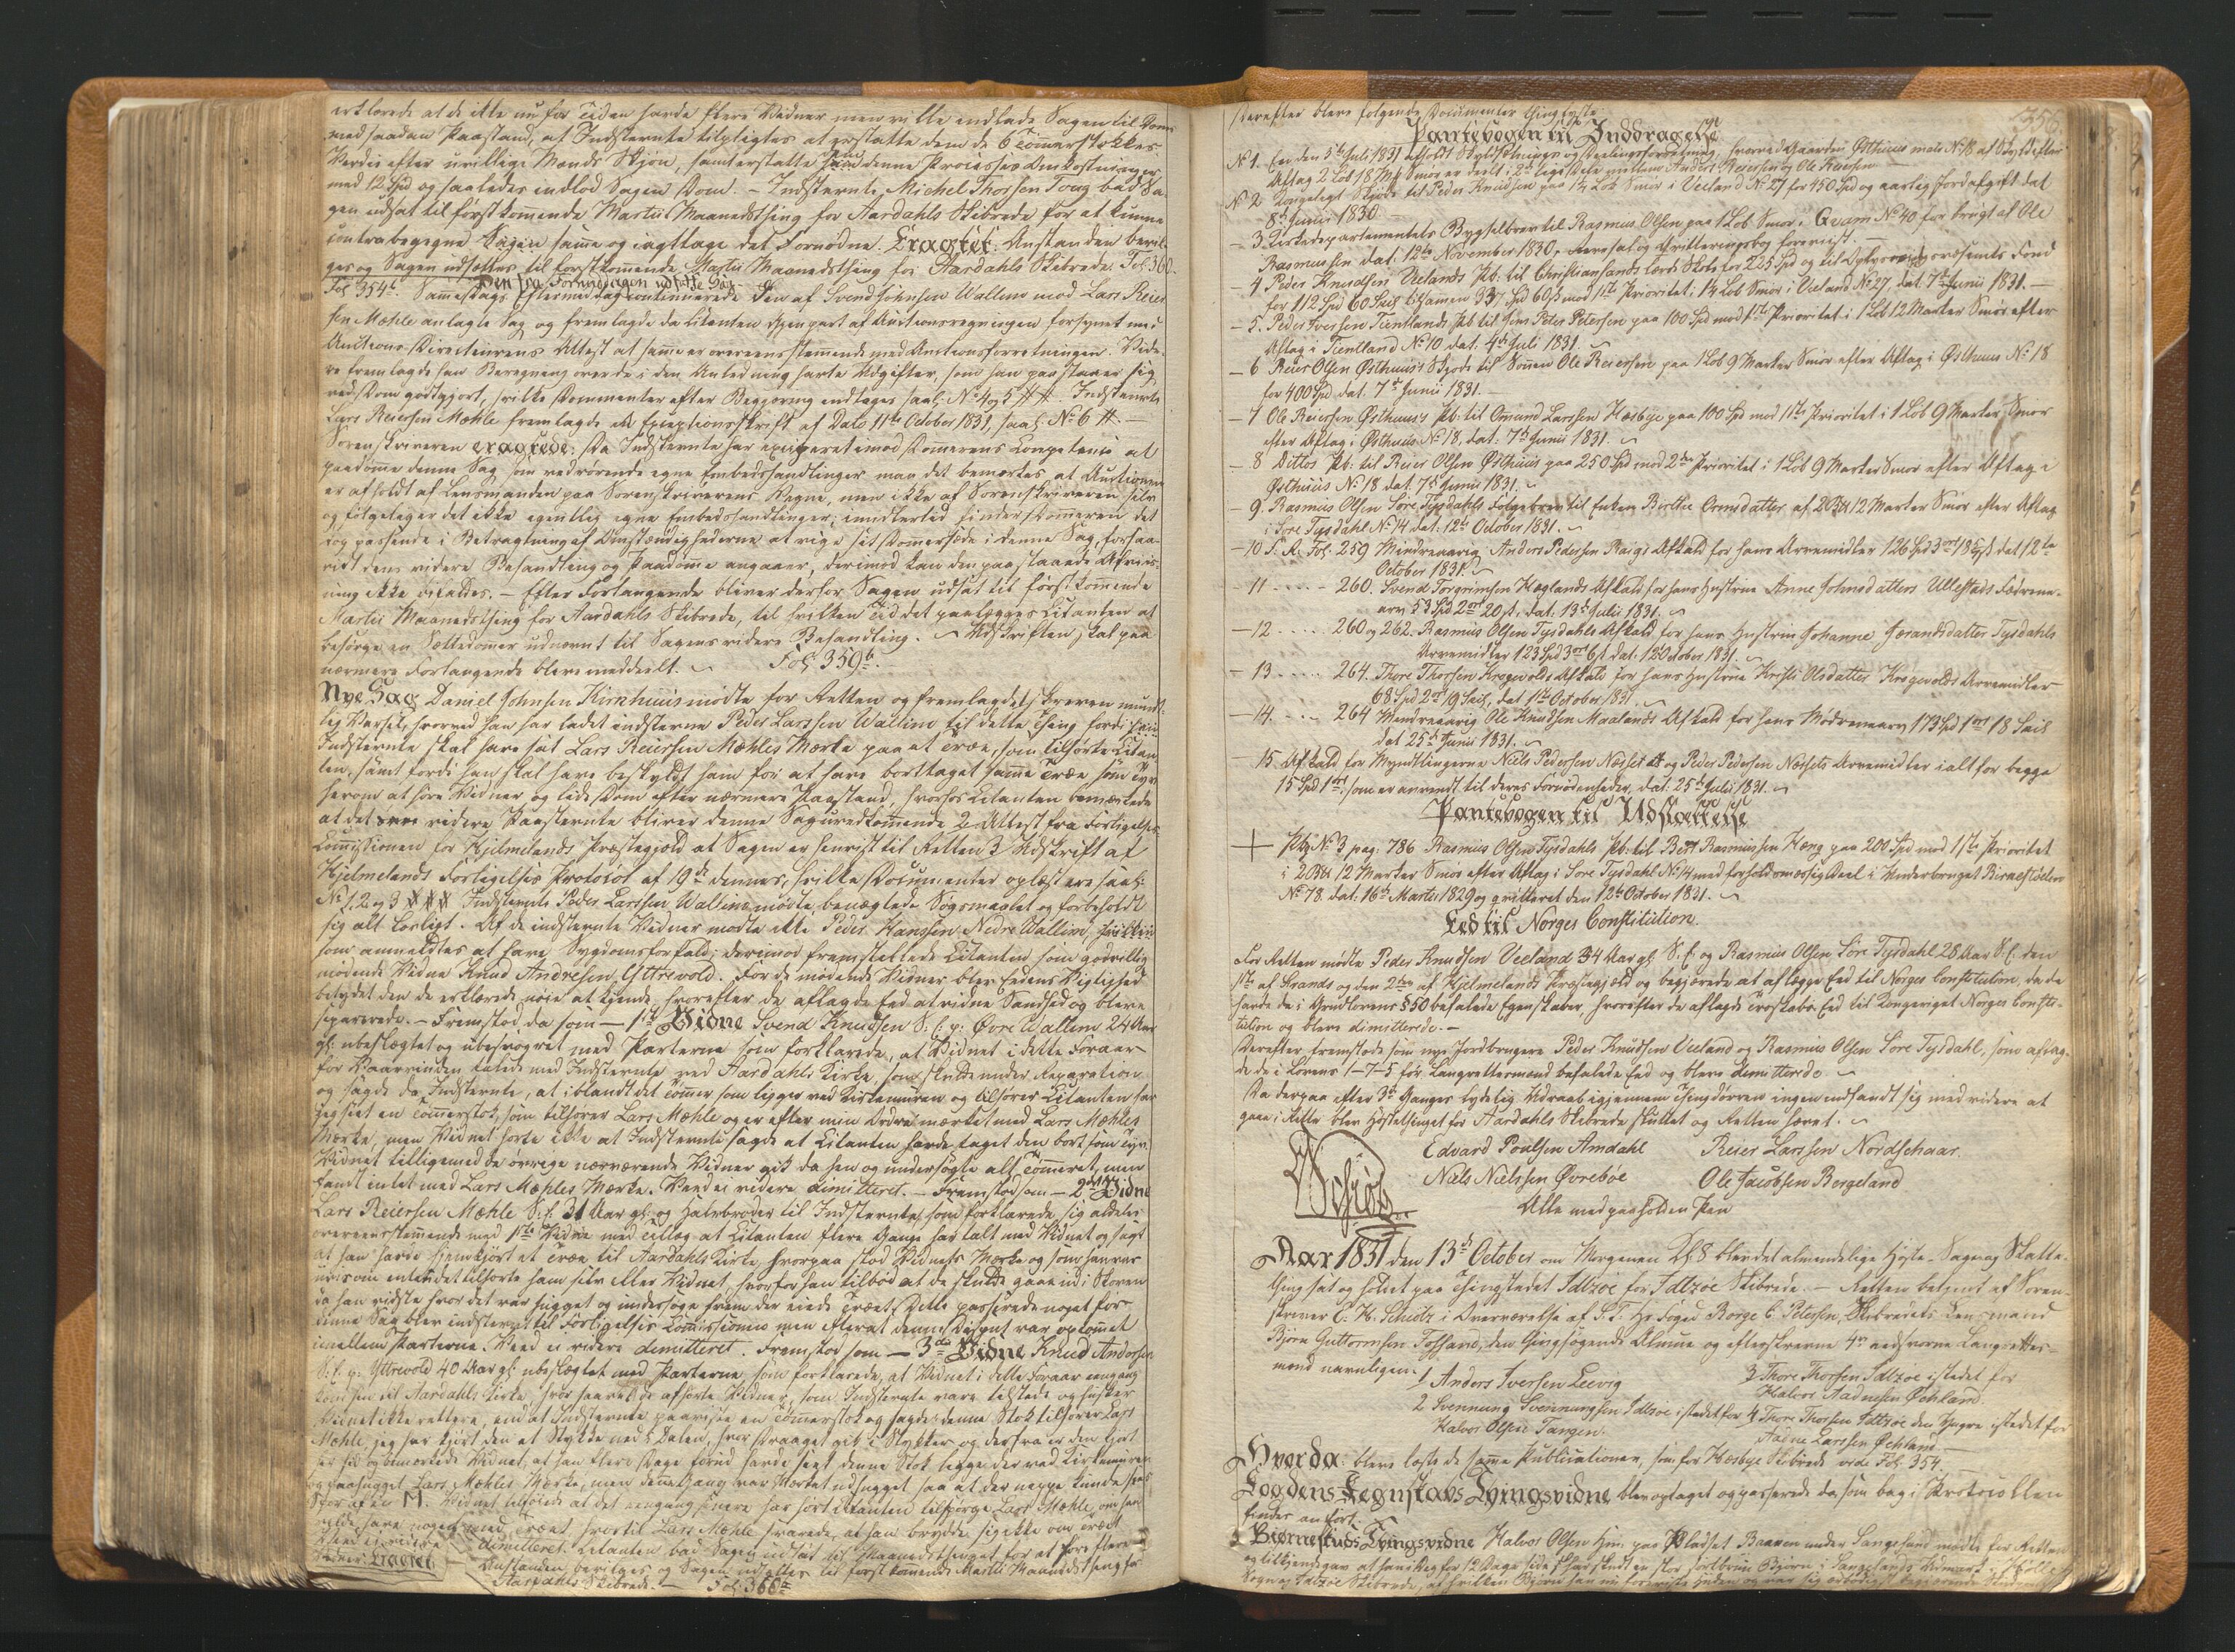 erklærede at de ikke nu for Tiden havde flere Vidner men ville indlade Sagen til Dom
med saadan Paastand, at Indstevnte tilpligtes at erstatte dem de 6 Tømmerstokkes
Værdie efter uvillige Mænds Skjøn, samt erstatte ham denne Processes Omkostninger
med 12 Spd og saaledes indlod Sagen Dom. - Indstevnte Michel Thorsen Soug bad Sa-
gen udsat til førstkommende Martii Maanedsthing for Aardahls Skibrede for at kunne
contrabegegne Sagen samme og iagttage det Fornødne. Eragtet: Anstanden bevil-
ges og Sagen udsættes til førstkommende Martii Maanedsthing for Aardahls Skibrede. Fol. 360.
Den fra Formiddagen udsatte Sag
Fol 354b. Samme Dags Eftermiddag continuerede den af Svend Johnsen Wallem mod Lars Reier-
sen Mæhle anlagte Sag og fremlagde da Citanten Gjenpart af Auctionsregningen forsynet med
Auctions Directeurens Attest at samme er overeensstemmende med Auctionsforretningen. Vide-
re fremlagde han Beregning over de i den Anledning havte Udgifter, som han paastaaer sig
ved Dom godtgjort, hvilke Documenter efter Begjæring indtages saal. No 4 og 5 ##. Indstevnte
Lars Reiersen Mæhle fremlagde et Exceptionsskrift af Dato 11te October 1831, saal. No 6 #. -
Sorenskriveren eragtede: Da Indstevnte har exciperet imod Dommerens Competence at
paadømme denne Sag som vedrørende egne Embedshandlinger maa det bemærkes at Auctionen
er afholdt af Lensmanden paa Sorenskriverens Vegne, men ikke af Sorenskriveren selv
og følgelig er det ikke egentlig egne Embedshandlinger; imidlertid finder Dommeren det
dog passende i Betragtning af Omstændighederne at vige sit Dommersæde i denne Sag, forsaa-
vidt dens videre Behandling og Paadømme angaaer, derimod kan den paastaaede Afviis-
ning ikke bifaldes. - Efter Forlangende bliver derfor Sagen udsat til førstkommende
Martii Maanedsthing for Aardahls Skibrede, til hvilken Tid det paalægges Citanten at
besørge en Sættedommer udnævnt til Sagens videre Behandling. Udskriften skal paa
nærmere Forlangende blive meddeelt. Fol. 359b.
Nye Sag Daniel Johnsen Kirkhuus mødte for Retten og fremlagde skreven mundt-
lig Varsel, hvorved han har ladet indstevne Peder Larssen Wallem til dette Thing fordi
Indstevnte skal have sat Lars Reiersen Mæhles Mærke paa et Træe, som tilhørte Citan-
ten, samt fordi han skal have beskyldt ham for at have borttaget samme Træe som Tyv
herom at høre Vidner og lide Dom efter nærmere Paastand, hvorhos Citanten bemærkede
at det videre Paastevnte bliver denne Sag uvedkommende 2 Attest fra Forligelses
Commissionen for Hjelmelands Præstegjeld at Sagen er henvist til Retten 3 Udskrift af
Hjelmelands Forligelses Protocol af 19de dennes, hvilke Documenter oplæst ere saal.
No 1. 2 og 3 ### Indstevnte Peder Larssen Wallem mødte, benægtede Søgsmaalet og forbeholdt
sig alt Lovligt. Af de indstevnte Vidner mødte ikke Peder Hanssen Nedre Wallem hvilken
som anmeldtes at have Sygdomsforfald; derimod fremstillede Citanten som godvillig
mødende Vidne Knud Andersen Yttrevold. For de mødende Vidner blev Eedens Vigtighed
betydet den de erklærede nøie at kjende, hvorefter de aflagde Eed at vidne Sandhed og bleve
separerede. - Fremstod da som - 1te Vidne Svend Knudsen S. f. p. Øvre Wallem 24 Aar
gl. ubeslægtet og ubesvogret med Parterne som forklarede, at Vidnet i dette Foraar
før Vaarvinden talede med Indstevnte ved Aardahls Kirke, som skulde under Reparation
og sagde da Indstevnte, at iblandt det Tømmer som ligger ved Kirkemuren og tilhører Citanten har
jeg seet en Tømmerstok, som tilhører Lars Mæhle og er efter min Ordre mærket med Lars Mæhles
Mærke, men Vidnet hørte ikke at Indstevnte sagde at Citanten havde taget den bort som Tyv.
Vidnet tilligemed de øvrige nærværende Vidner gik da hen og undersøgte alt Tømmeret, men
fandt intet med Lars Mæhles Mærke. Veed ei videre dimitteret. - Fremstod som - 2det Vidne
Lars Reiersen Mæhle S. f. 31 Aar gl. og Halvbroder til Indstevnte som forklarede sig aldeles
overeensstemmende med 1te Vidne med Tillæg at Citanten flere Gange har talt med Vidnet og sagt
at han havde hjemkjørt et Træe til Aardahls Kirke hvorpaa stod Vidnets Mærke og som han var
uvis om enten det tilhørte ham selv eller Vidnet, hvorfor han tilbød at de skulde gaae ind i Skoven
da han vidste hvor det var hugget og undersøge hvem der eiede Træet. Dette passerede noget før
denne Sag blev indstevnt til Forligelses Commissionen men efterat denne Dispyt var opkommet
imellem Parterne. Veed ei videre dimitteret. Fremstod som - 3die Vidne Knud Andersen
S. f. p. Yttrevold 40 Aar gl. ubeslægtet med Parterne, som forklarede, at Vidnet i dette Foraar engang
kom hen til Aardahls Kirke, hvor saavel de afhørte Vidner, som Indstevnte vare tilstede og husker
Vidnet ikke rettere, end at Indstevnte paaviste en Tømmerstok og sagde: denne Stok tilhører Lars
Mæhle, jeg har kjørt den et Stykke ned i Dalen, hvor Draaget gik i Stykker og derfra er den
og bemærkede Vidnet, at han flere Dage forud havde seet denne Stok ligge der ved Kirkemuren
og paahugget Lars Mæhles Mærke, men denne Gang var Mærket udhugget saa at der neppe kunde sees
Spor af en M. Vidnet tilføiede at det engang senere har hørt Citanten tilspørge Lars Mæhle, om han
vilde have noget med Træet, hvortil Lars Mæhle svarede, at han brydde sig ikke om Træet
Veed ei videre dimitteret. Citanten bad Sagen udsat til Maanedsthinget for at føre flere
Vidner. Eragtet Anstanden bevilges og Sagen udsættes til førstkommende Martii Maanedsthing for
Aardahls Skibrede. - Fol. 366a
356.
Derefter bleve følgende Documenter thinglyste
Pantebogen til Inddragelse
No 1. En den 5te Juli 1831 afholdt Skyldsætnings og Deelingsforretning, hvorved Gaarden Østhuus mats No 18 af Skyld efter
Aftag 2 Løb 18 Mk Smør er deelt i 2de lige Dele mellem Anders Reiersen og Ole Reiersen. -
No 2 Kongeligt Skjøde til Peder Knudsen paa 1½ Løb Smør i Veeland No 27 for 450 Spd og aarlig Jordafgift dat
8de Junii 1830
- 3. Kirkedepartementets Bygselbrev til Rasmus Olsen paa 1 Løb Smør i Qvam No 40 forbrugt af Ole
Rasmussen dat. 12te November 1830. Revers at og Qvitteringsbog foreviist.
- 4 Peder Knudsen Veelands Pb. til Christiansands lærde Skole for 225 Spd og til Oplysningsvæsenets Fond
for 112 Spd 60 Skil tilsammen 337 Spd 60 ß mod 1te Prioritet i 1½ Løb Smør i Veeland No 27. dat. 7de Junii 1831. -
- 5. Peder Iversen Tientlands Pb til Jens Peter Petersen paa 100 Spd mod 1te Prioritet i 1 Løb 12 Marker Smør efter
Aftag i Tientland No 10 dat. 4de Juli 1831.
- 6 Reier Olsen Østhuus's Skjøde til Sønnen Ole Reiersen paa 1 Løb 9 Marker Smør efter Aftag i Østhuus No 18
for 400 Spd dat. 7de Junii 1831. -
- 7 Ole Reiersen Østhuus's Pb. til Omund Larssen Hæsbye paa 100 Spd mod 1te Prioritet i 1 Løb 9 Marker Smør
efter Aftag i Østhuus No 18, dat. 7de Junii 1831.
- 8 Dittos Pb. til Reier Olsen Østhuus paa 250 Spd mod 2den Prioritet i 1 Løb 9 Marker Smør efter Aftag i
Østhuus No 18 dat. 7de Junii 1831.
- 9. Rasmus Olsen Søre Tysdahls Følgebrev til Enken Berthe Ormsdatter af 2 Pd 12 Marker Smør efter Aftag
i Søre Tysdahl No 14 dat. 12te October 1831.
- 10 S. R. Fol. 259 Mindreaarig Anders Pedersen Raigs Afkald for hans Arvemidler 126 Spd 3 ort 18 ß dat 12te
October 1831.
11 - - - - 260. Svend Torgrimsen Hæglands Afkald for hans Hustrue Anne Johnsdatters Ullestads Fædrene-
arv 53 Spd 2 ort 20 ß. dat. 13de Julii 1831.
- 12 - - - - 260 og 262. Rasmus Olsen Tysdahls Afkald for hans Hustrue Johanne Jørandsdatter Tysdahls
Arvemidler 123 Spd 3 ort 6 ß dat. 12 October 1831.
- 13. - - - - 264. Thore Thorsen Krogevolds Afkald for hans Hustrue Kristi Olsdatter Krogevolds Arvemidler
68 Spd 2 ort 19 Skil, dat 1te October 1831
- 14. - - - 264 Mindreaarig Ole Knudsen Maalands Afkald for hans Mødrenearv 173 Spd 1 ort 18 Skil
dat 25de Junii 1831.
- 15 Afkald for Myndlingerne Niels Pedersen Næset og Peder Pedersen Næsets Arvemidler ialt for begge
15 Spd 1 ort, som er anvendt til deres Fornødenheder, dat. 25de Julii 1831.
Pantebogen til Udslættelse
Pbg. No 3 pag. 786 Rasmus Olsen Tysdahls Pb. til Berth Rasmussen Hæng paa 200 Spd mod 1te Prioritet
i 2 Pd 12 Marker Smør efter Aftag i Søre Tysdahl No 14 med forholdsmæssig Deel i Underbruget Birrestølen
No 78. dat. 16de Martii 1829 og qvitteret den 12te October 1831.
Eed til Norges Constitution.
For Retten mødte Peder Knudsen Veeland 34 Aar gl. S. f. og Rasmus Olsen Søre Tysdahl 28 Aar S. f. den
1te af Strands og den 2den af Hjelmelands Præstegjeld og begjerede at aflægge Eed til Norges Constitution, da de
havde de i Grundlovens § 50 befalede Egenskaber, hvorefter de aflagde Troskabs Eed til Kongeriget Norges Consti-
tution og bleve dimitterede. -
Derefter fremstode som nye Jordbrugere Peder Knudsen Veeland og Rasmus Olsen Søre Tysdahl, som aflag-
de de i Lovens 1-7-5 for Laugrettesmænd befalede Eed og bleve dimitterede.
Da derpaa efter 3de Ganges lydelig Udraab igjennem Thingdørren ingen indfandt sig med videre at
gaae i Rette blev Høstethinget for Aardahls Skibrede sluttet og Retten hævet.
Schiøtz
Edvard Poulsen Amdahl Reier Larssen Nordschaar.
Niels Nielssen Øvrebøe Ole Jacobsen Bergeland
Alle med paaholden Pen
Aar 1831 den 13de October om Morgenen Kl. 8 blev det almindelige Høste- Sage og Skatte-
thing sat og holdt paa Thingstedet Idtzøe for Idtzøe Skibrede. - Retten betjent af Soren-
skriver C. H. Schiøtz i Overværelse af S. T. Hr Foged Borge C. Petersen, Skibredets Lensmand
Bjørn Guttormsen Fossand, den thingsøgende Almue og efterskrevne 4re eedsvorne Laugrettes-
mænd navnligen:
1 Anders Iversen Leevig 3 Thore Thorsen Idtzøe istedet for
Halvor Aadnesen Øchland.
2 Svennung Svennungsen Idtzøe istedet for 4 Thore Thorsen Idtzøe den Yngre istedet for
Halvor Olsen Tangen. Aadne Larssen Øchland. -
Hvorda: bleve læste de samme Publicationer, som for Hæsbye Skibrede vide Fol. 354.
Fogdens Regnskabs Tingsvidne blev optaget og passerede da som bag i Protocollen
findes anført.
Biørneskuds Tingsvidne Halvor Olsen Hjm. paa Pladset Baasen under Langeland mødte for Retten
og tilkjendegav at han